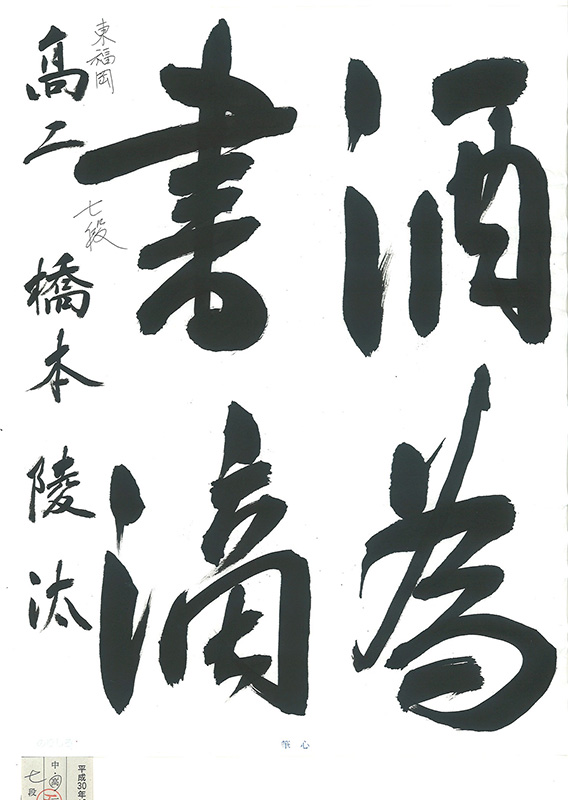 酒為
書滴
東福岡
高二 橋本陵汰
七段
心筆
平成30年
中・高
七段